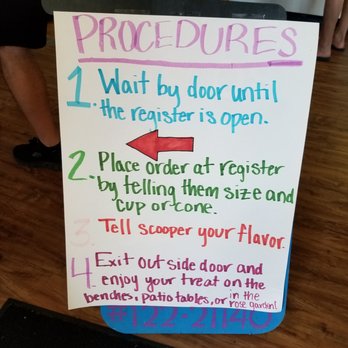 PROCEDURES
1. Wait by door until
the register is open.
2. Place order at register
by telling them size and
cup or cone.
3. Tell scooper your flavor.
4. Exit out side door and
enjoy your treat on the
benches, patio tables, or in the
rose garden!